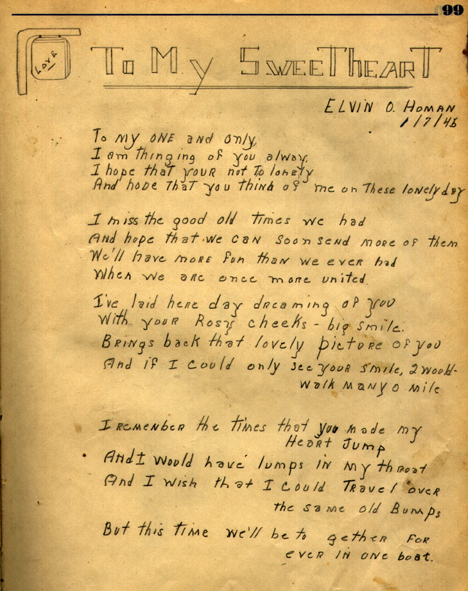 99
LOVE
To My SweeTheart
ELVIN O. HOMAN
1/7/45
To my ONE and only,
I am thinging of you alway,
I hope that your not To lonely
And hope That you think of me on These lonely day
I miss the good old times we had
And hope that we can soon send more of them
We'll have more fun than we ever had
When we are once more united.
I've laid here day dreaming of you
With your Rosy cheeks - big smile.
Brings back that lovely picture of you
And if I could only see your smile, I would-
walk many a mile
I remember the times that you made my
Heart Jump
And I would have lumps in my throat
And I wish that I could Travel over
the same old Bumps
But this time we'll be to gether for
ever in one boat.